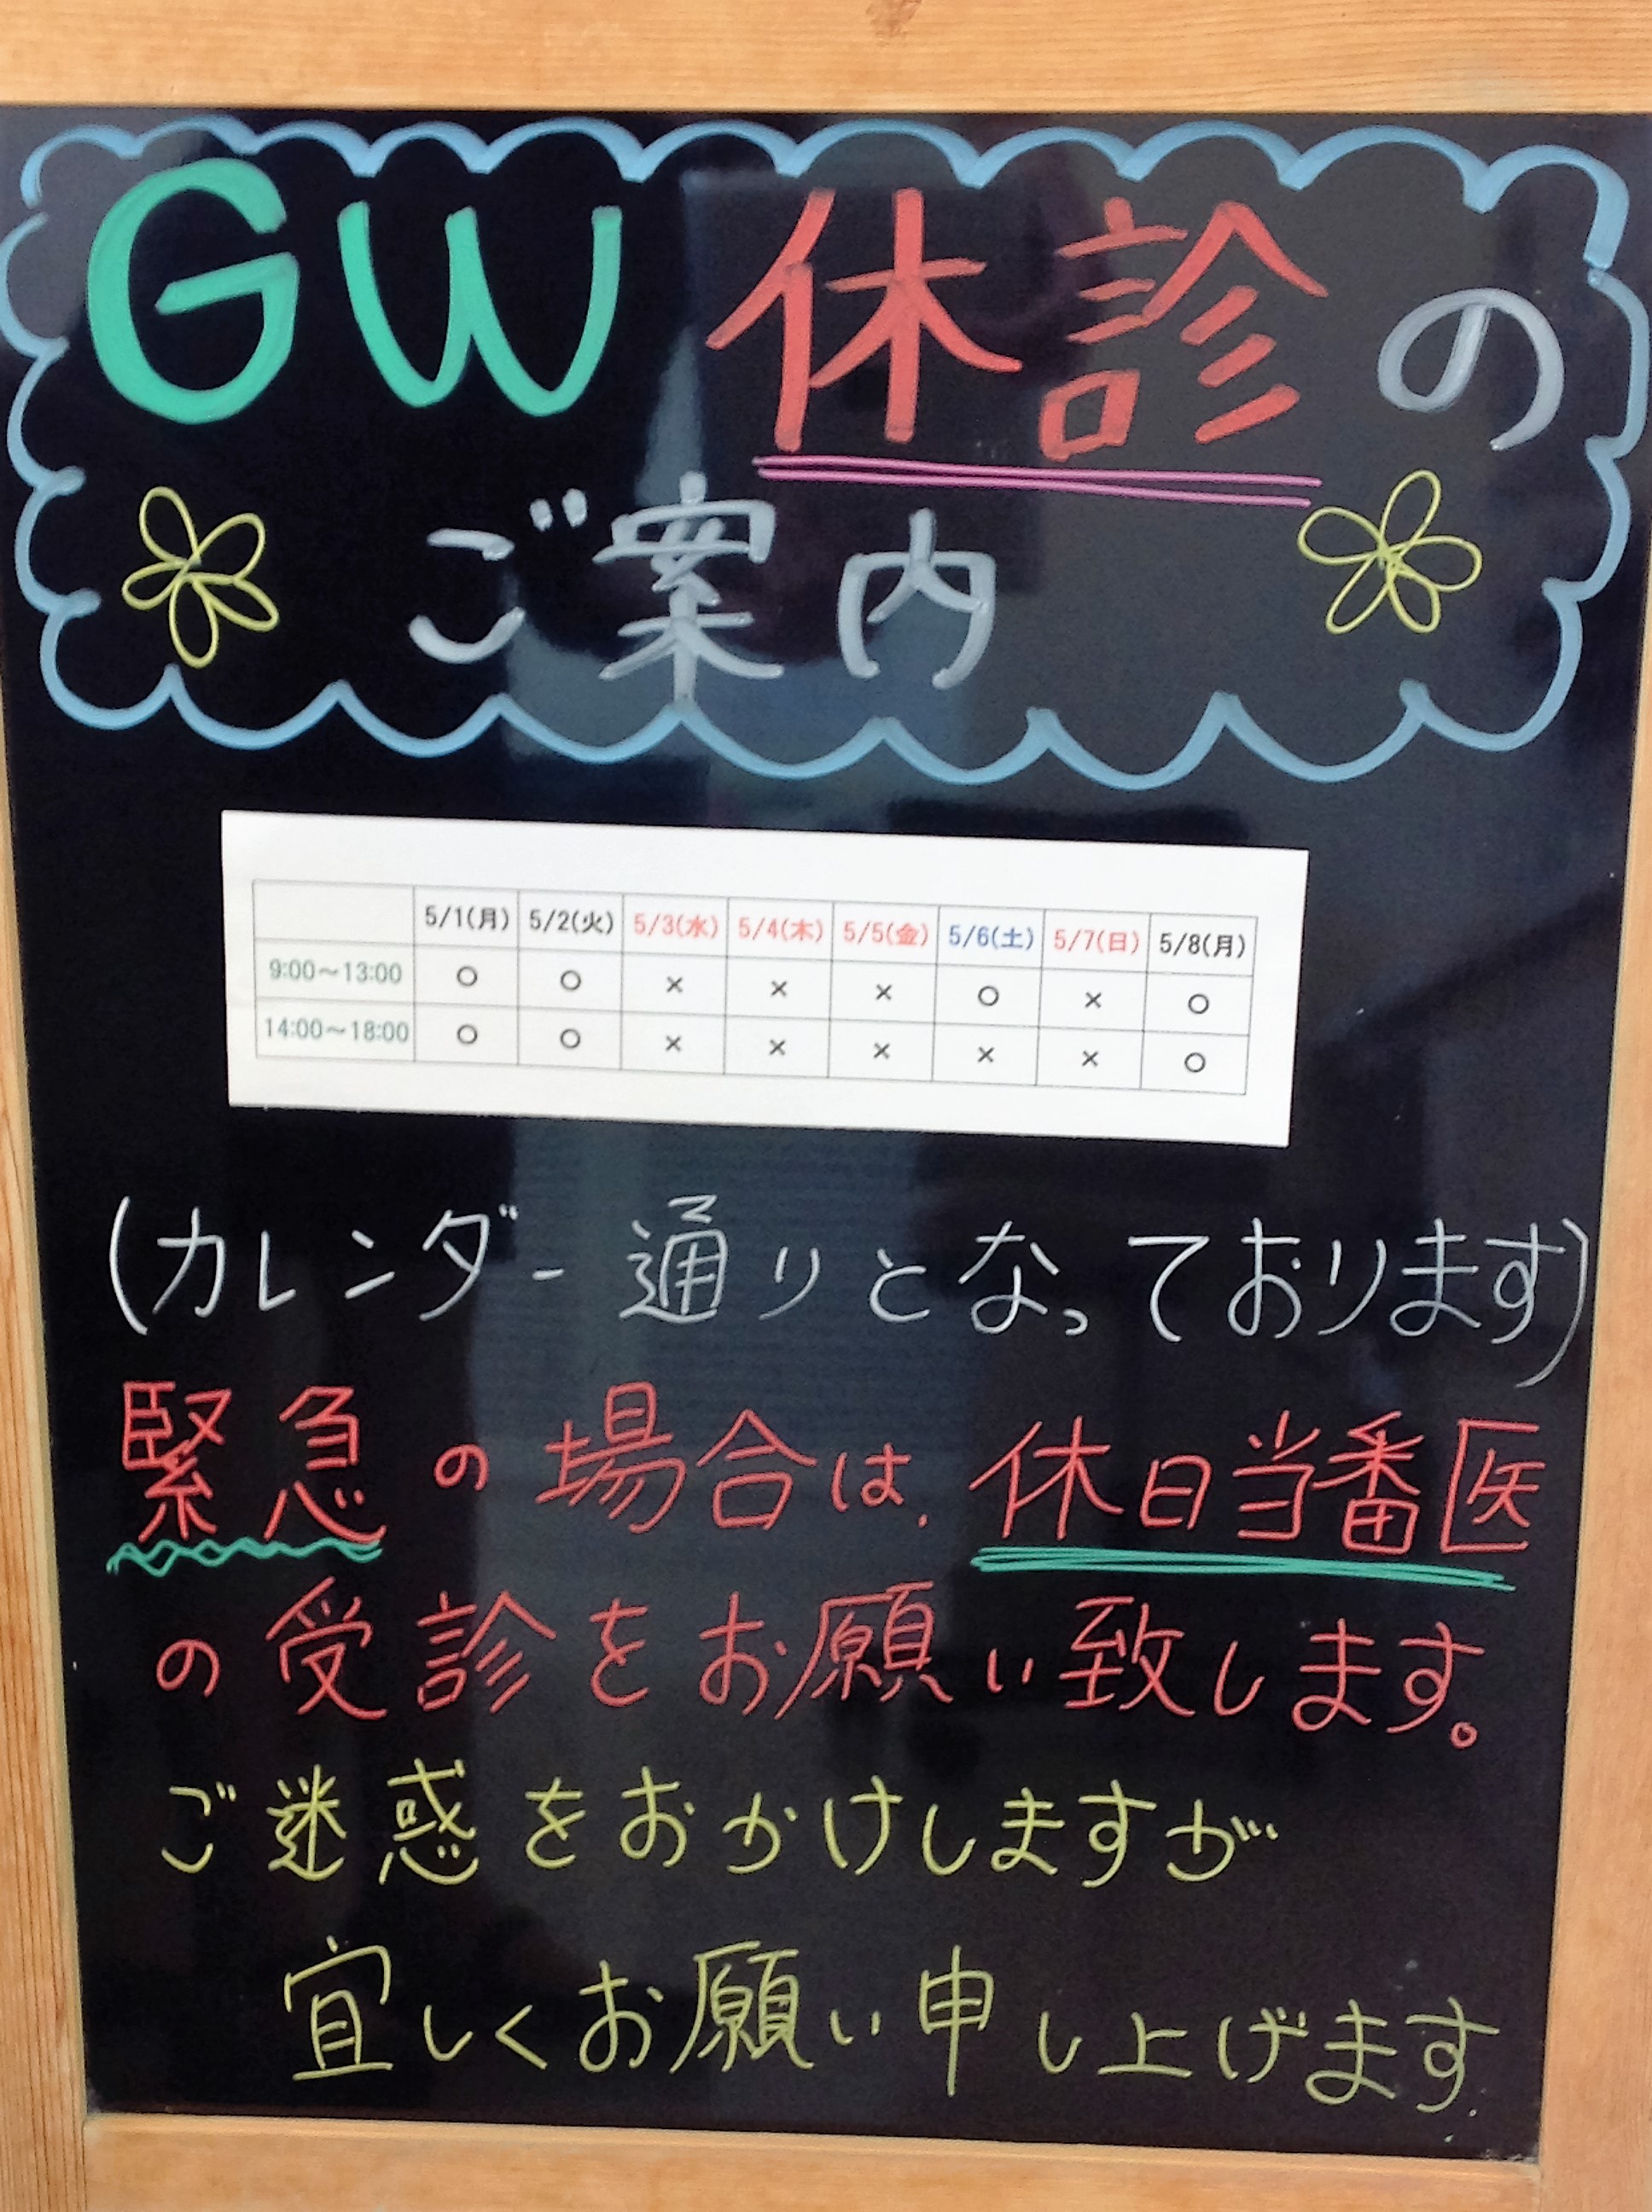 GW 休診の
ご案内
5/1(月) 5/2(火) 5/3(水) 5/4(木) 5/5(金) 5/6(土) 5/7(日) 5/8(月)
9:00～13:00 ○ ○ × × × ○ × ○
14:00～18:00 ○ ○ × × × × × ○
(カレンダー通りとなっております)
緊急の場合は、休日当番医
の受診をお願い致します。
ご迷惑をおかけしますが
宜しくお願い申し上げます.